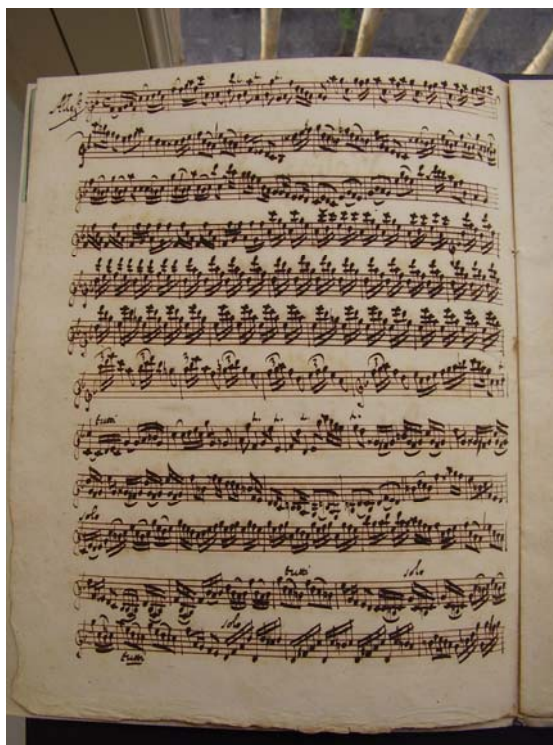 Allegº
tutti
solo
tutti solo
solo
tutti